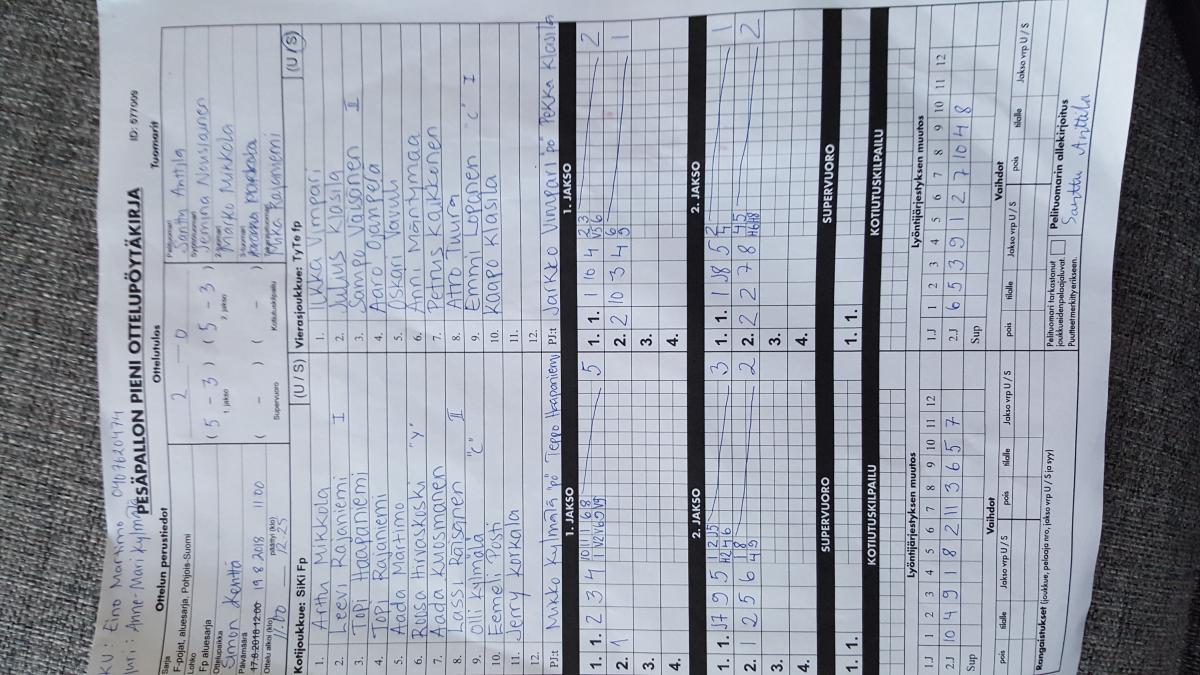 KU: Eino Martimo 0407620474
Juri: Anne-Mari Kylmälä
PESÄPALLON PIENI OTTELUPÖYTÄKIRJA
ID: 577009
Ottelun perustiedot
Sarja
F-pojat, aluesarja, Pohjois-Suomi
Lohko
Fp aluesarja
Ottelupaikka
Simon Kenttä
Päivämäärä
17.8.2018 12:00 19 8 2018 11 00
Ottelu alkoi (klo) päättyi (klo)
11.00 12.25
Ottelutulos
2 0
( 5 - 3 ) ( 5 - 3 )
1. jakso 2. jakso
( - ) ( - )
Supervuoro Kotiutuskilpailu
Tuomarit
Pelituomari
Santtu Anttila
Syöttötuomari
Jemina Nousiainen
2-tuomari
Marko Mikkola
3-tuomari
Takarajatuomari
Rajaniemi
Kotijoukkue: SiKi Fp (U / S)
1. Arttu Mikkola
2. Leevi Rajaniemi I
3. Topi Haapaniemi
4. Topi Rajaniemi
5. Aada Martimo
6. Roosa Hirvaskoski "Y"
7. Aada Kuosmanen
8. Lassi Räisänen II
9. Olli Kylmälä "C"
10. Eemeli Posti
11. Jerry Korkala
12.
PJ:t Mikko Kylmälä "po" Teppo Haapaniemi
Vierasjoukkue: TyTe fp (U / S)
1. Iikka Vimpari
2. Julius Klasila
3. Sampo Väisänen II
4. Aaro Ojanperä
5. Oskari Vavulu
6. Anni Mäntymaa
7. Petrus Kaikkonen
8. Atro Tuura
9. Eemmil Loponen "C" I
10. Kaapo Klasila
11.
12.
PJ:t Jarkko Vimpari "po" Pekka Klasila
1. JAKSO 1. JAKSO
1. 1. 2 3 4 5
1. 1. 1 10 4 2
2. 1
2. 2 10 3 4 1
3. 3.
4. 4.
2. JAKSO 2. JAKSO
1. 1. 9 5 3
1. 1. 1 1
2. 1 2 5 6 2
2. 2 2 7 8 2
3. 3.
4. 4.
SUPERVUORO SUPERVUORO
1. 1. 1. 1.
KOTIUTUSKILPAILU KOTIUTUSKILPAILU
Lyöntijärjestyksen muutos
1.J 1 2 3 4 5 6 7 8 9 10 11 12
2.J 10 4 9 1 8 2 11 3 6 5 7
Sup
Vaihdot
pois tilalle Jakso vrp U / S pois tilalle Jakso vrp U / S
Lyöntijärjestyksen muutos
1.J 1 2 3 4 5 6 7 8 9 10 11 12
2.J 6 5 3 9 1 2 7 10 4 8
Sup
Vaihdot
pois tilalle Jakso vrp U / S pois tilalle Jakso vrp U / S
Rangaistukset (joukkue, pelaaja nro, jakso vrp U / S ja syy)
Pelituomari tarkastanut
joukkueiden pelaajaluvat.
Puutteet merkitty erikseen.
Pelituomarin allekirjoitus
Santtu Anttila